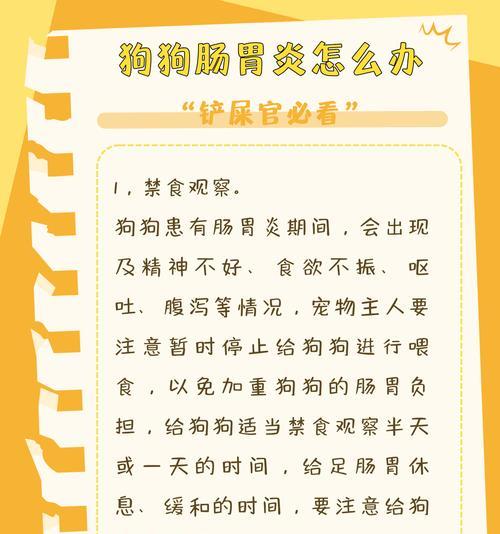 狗狗肠胃炎怎么办
“铲屎官必看”
1，禁食观察。
狗狗患有肠胃炎期间，会出现
及精神不好、食欲不振、呕
吐、腹泻等情况，宠物主人要
注意暂时停止给狗狗进行喂
食，以免加重狗狗的肠胃负
担，给狗狗适当禁食观察半天
或一天的时间，给足肠胃休
息、缓和的时间，要注意给狗